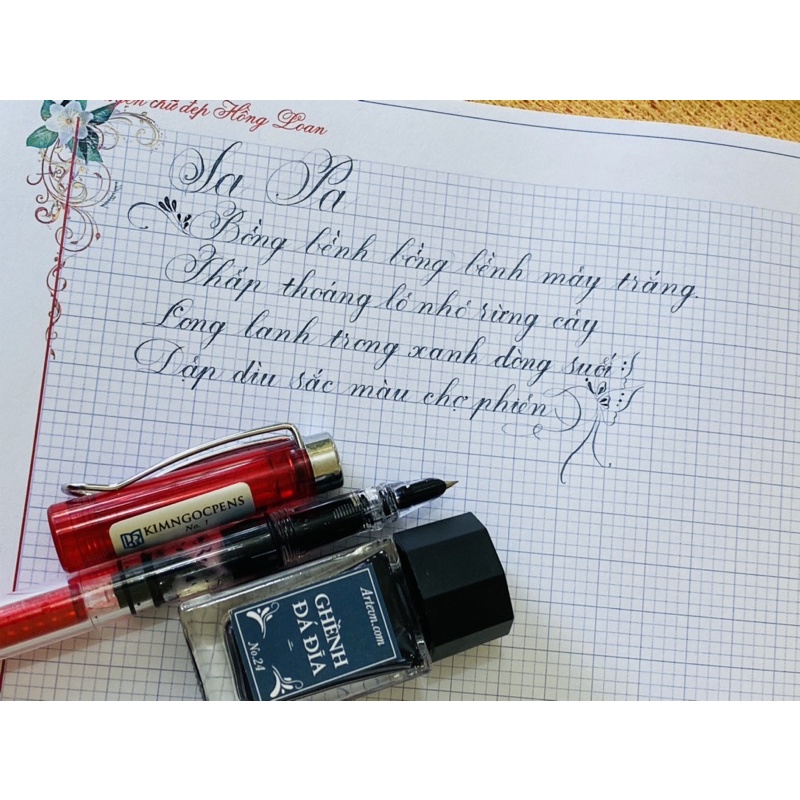 chữ đẹp Hồng Loan
Sa Pa
Bồng bềnh bồng bềnh mây trắng.
Thấp thoáng lô nhô rừng cây
Long lanh trong xanh dòng suối
Dập dìu sắc màu chợ phiên
KIMNGOCPENS
No. 1
Artevn.com
GHỀNH
ĐÁ ĐĨA
No.24